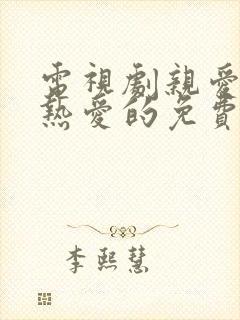 電視劇親愛
熱愛的免費
李熙慧